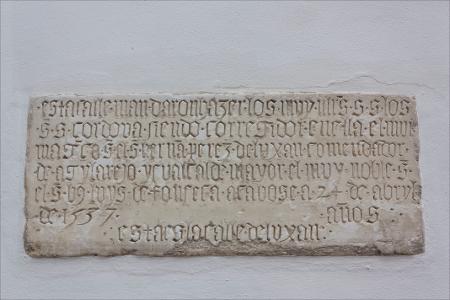 esta calle · mandaron hazer · los · mvy · illes · s · s · los
· s · s · cordova · siendo · corregidor · en ella · el · mvy
mag · co · s · el s · hernã perez · de lvxan · comendador ·
de · y · alcalde · mayor · el · mvy · noble · s
el · s · lvys · de · fonseca · acabose · a · 24 · de · abryl
de · 1537 · años ·
· esta es la calle de lvxan ·